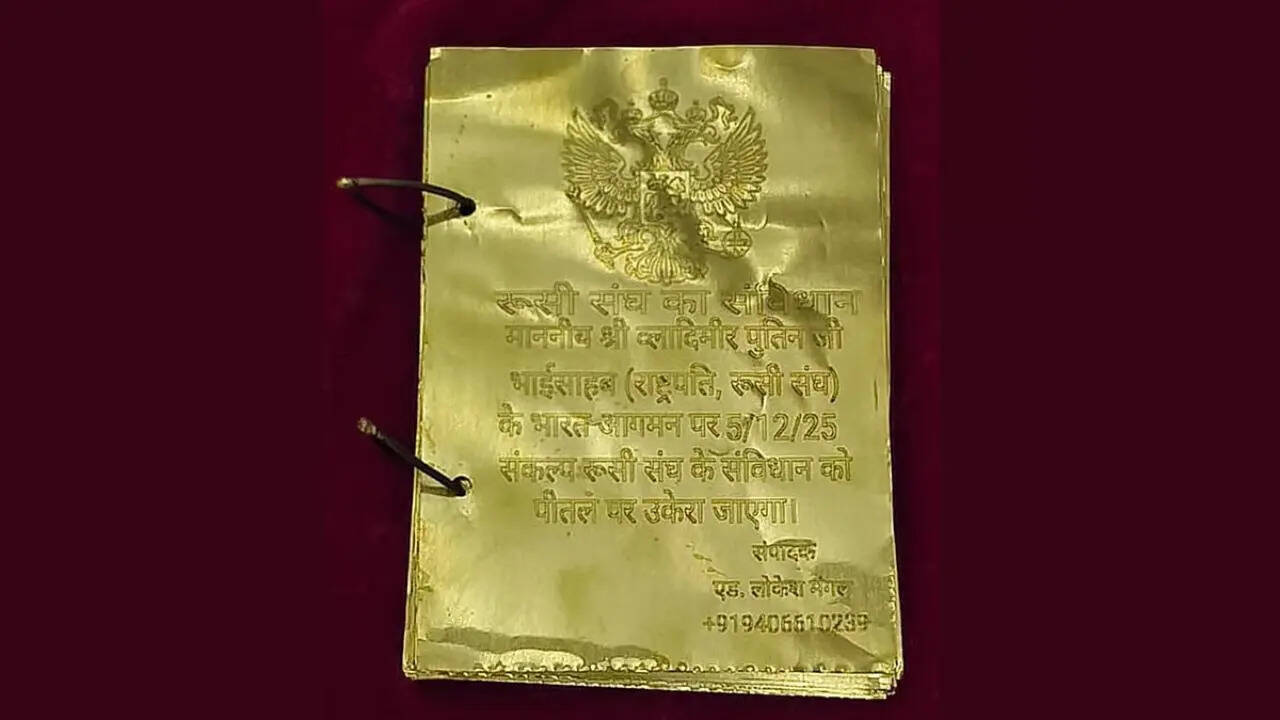 रूसी संघ का संविधान
माननीय श्री व्लादिमीर पुतिन जी
भाईसाहब (राष्ट्रपति, रूसी संघ)
के भारत आगमन पर 5/12/25
संकल्प रूसी संघ के संविधान को
पीतल पर उकेरा जाएगा।
संपादक
एड. लोकेश मंगल
+919406610239